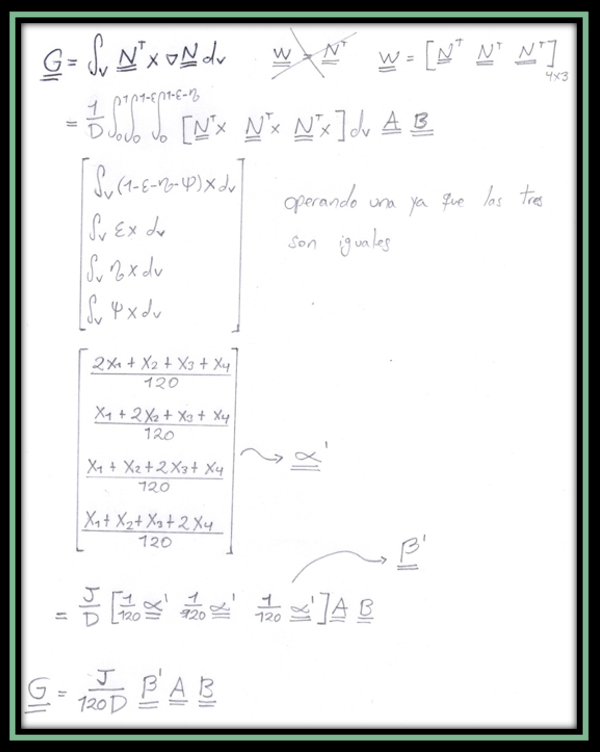 G = ∫ᵥ Nᵀ x ∇N dv   W = Nᵀ   W = [Nᵀ Nᵀ Nᵀ]4x3
= 1/D ∫₀¹ ∫₀^1-ε ∫₀^1-ε-η [Nᵀx Nᵀx Nᵀx] dv A B
∫ᵥ (1-ε-η-ψ) x dv
operando una ya que las tres
∫ᵥ εx dv
son iguales
∫ᵥ ηx dv
∫ᵥ ψx dv
2X₁ + X₂ + X₃ + X₄
120
X₁ + 2X₂ + X₃ + X₄
120
X₁ + X₂ + 2X₃ + X₄
120
α'
X₁ + X₂ + X₃ + 2X₄
120
β'
= J/D [1/120 α' 1/120 α' 1/120 α'] A B
G = J/120D β' A B